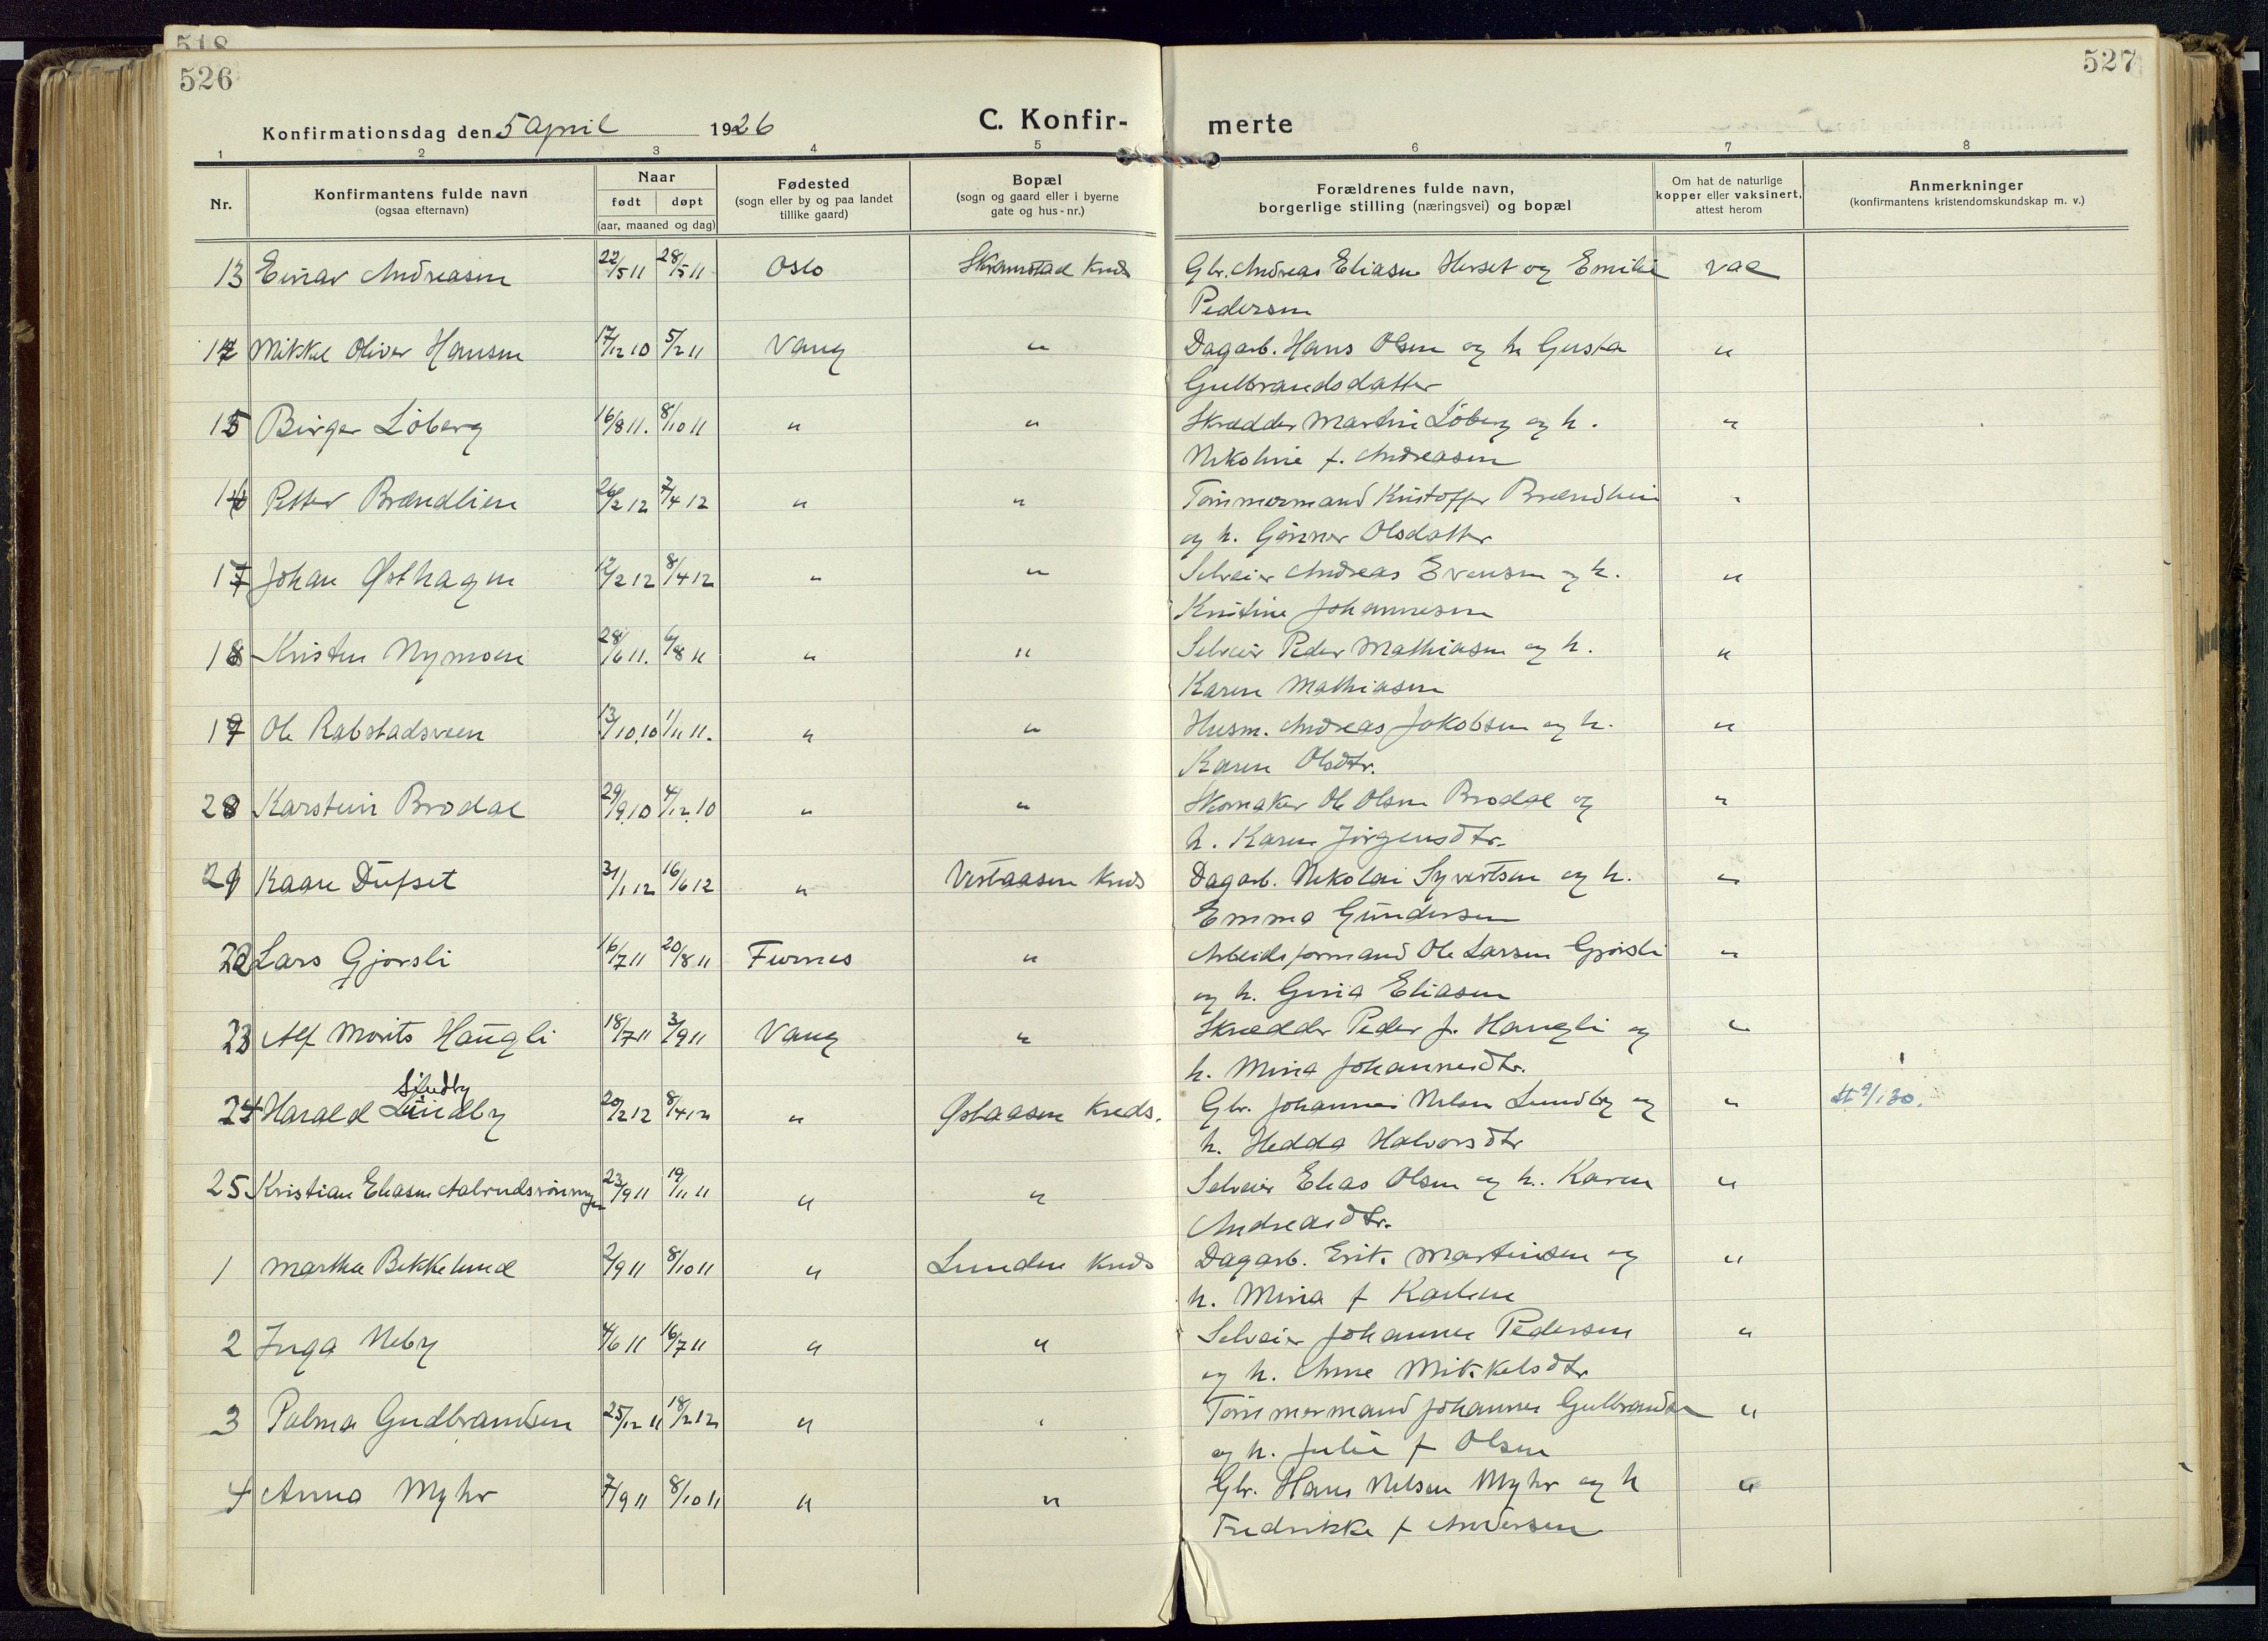 518
526
527
Konfirmationsdag den 5 April 1926
C. Konfir-
merte
1 2 3 4 5 6 7 8
Nr.
Konfirmantens fulde navn
(ogsaa efternavn)
Naar
født døpt
(aar, maaned og dag)
Fødested
(sogn eller by og paa landet
tillike gaard)
Bopæl
(sogn og gaard eller i byerne
gate og hus-nr.)
Forældrenes fulde navn,
borgerlige stilling (næringsvei) og bopæl
Om hat de naturlige
kopper eller vaksinert,
attest herom
Anmerkninger
(konfirmantens kristendomskundskap m. v.)
13 Einar Andreasen 22/5 11 28/5 11 Oslo Skramstad Kreds Gbr. Andreas Eliasen Herset og Emilie vac
Pedersen
14 Mikkel Oliver Hansen 17/12 10 5/2 11 Vang " Dagarb. Hans Olsen og h Gusta "
Gulbrandsdatter
15 Birger Löberg 16/8 11. 8/10 11 " " Skrædder Martin Löberg og h. "
Nikoline f. Andreasen
16 Petter Brændlien 26/2 12 7/4 12 " " Tömmermand Kristoffer Brændlien "
og h. Günner Olsdatter
17 Johan Østhagen 12/2 12 8/4 12 " " Selveier Andreas Evensen og h. "
Kristine Johannesen
18 Kristen Nymoen 28/6 11. 6/8 11 " " Selveier Peder Mathiasen og h. "
Karen Mathiasen
19 Ole Rabstadsveen 13/10.10 1/11 11. " " Husm. Andreas Jakobsen og h. "
Karen Olsdtr.
20 Karstein Brodal 29/9.10 4/12.10 " " Skomaker Ole Olsen Brodal og "
h. Karen Jörgensdtr.
21 Kaare Dufset 31/1 12 16/6 12 " Vestaasen Kreds Dagarb. Nikolai Syvertsen og h. "
Emma Gündersen
22 Lars Gjørsli 16/7 11 20/8 11 Furnes " Arbeidsformand Ole Larsen Gjørsli "
og h. Gina Eliasen
23 Alf Morits Haügli 18/7 11 3/9 11 Vang " Skrædder Peder J. Haugli og "
h. Mina Johannesdtr.
Sündby
24 Harald Lündby 20/2 12 8/4 12 " Østaasen Kreds. Gbr. Johannes Nilsen Lundby og " tt 9/1 30.
h. Hedda Halvorsdtr
25 Kristian Eliasen Aalrudsrönningen 23/9 11 19/11 11 " " Selveier Elias Olsen og h. Karen "
Andreasdtr.
1 Martha Bekkelund 2/9 11 8/10 11 " Lunden Kreds Dagarb. Erik Martinsen og "
h. Mina f Karlsen
2 Inga Neby 4/6 11 16/7 11 " " Selveier Johannes Pedersen "
og h. Anne Mikkelsdtr
3 Palma Gudbrandsen 25/12 11 18/2 12 " " Tömmermand Johannes Gulbrandsen "
og h. Julie f Olsen
4 Anna Myhr 7/9 11 8/10 11 " " Gbr. Hans Nilsen Myhr og h "
Fredrikke f Andersen